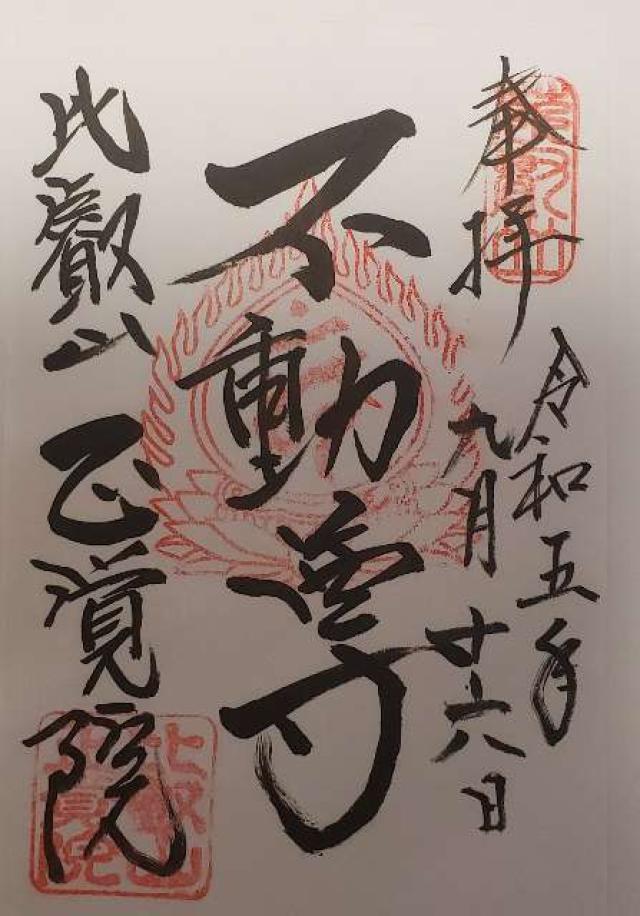 奉拝
令和五年
九月廿六日
不動尊
比叡山
正覚院
比叡山
正覚院